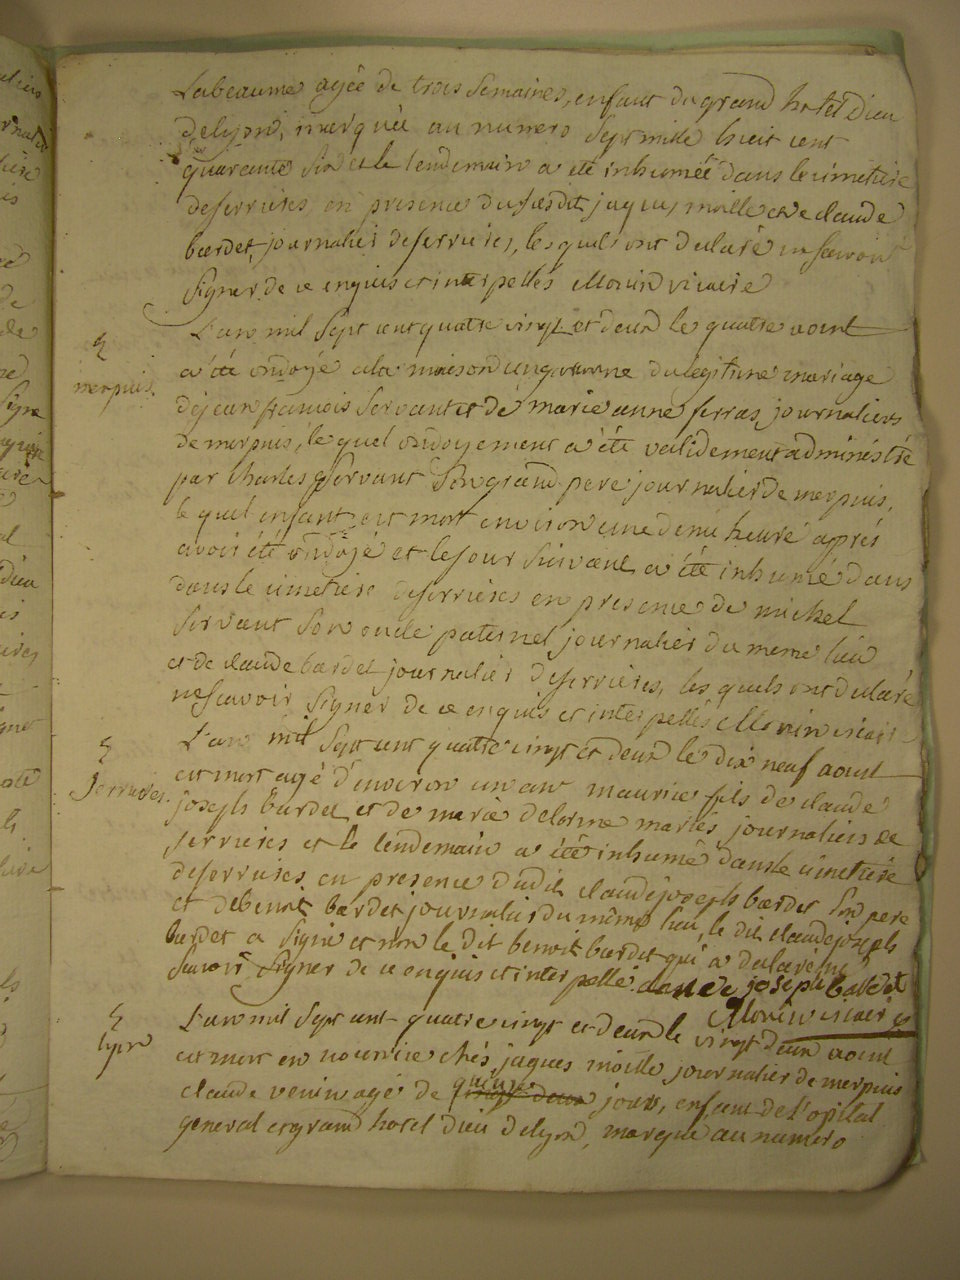 Labeaume agée de trois Semaines, enfant du grand hotel Dieu
de lyon, marquée au numero Sept mille huit cent
quarante Six et le lendemain a été inhumée dans le cimetiere
deserrieres en presence du susdit jaques moille et de claude
bardet, journalier deserrieres, lesquels ont declaré ne scavoir
Signer de ce enquis et interpellés Morin vicaire
L'an mil Sept cent quatre vingt et deux le quatre aout
merpuis.
a été ondoyé ala maison un garconne du legitime mariage
dejean francois Servant et de marie anne ferras journaliers
de merpuis, le quel ondoyement a été validement administré
par Charles Servant Son grand pere journalier de merpuis,
le quel enfant est mort environ une demi heure aprés
avoir été ondoyé et le jour Suivant a été inhumé dans
dans le cimetiere deserrieres en presence de michel
Servant Son oncle paternel journalier du meme lieu
et de claude bardet journalier deserrieres, les quels ont declaré
ne Scavoir Signer de ce enquis et interpellés Morin vicaire
L'an mil Sept cent quatre vingt et deux le dix neuf aout
Serrieres.
est mort agé d'environ un an maurice fils de claude
joseph bardet et de marie delorme mariés journaliers de
serrieres et le lendemain a été inhumé dans le cimetiere
deserrieres en presence dudit claude joseph bardet Son pere
et de benoit bardet journalier du même lieu, le dit claude joseph
bardet a Signé et non le dit benoit bardet qui a declaré ne
Savoir Signer de ce enquis et interpellé. claude joseph bardet
Morin vicaire
L'an mil Sept cent quatre vingt et deux le vingt deux aout
lyon
est mort en nourrice chés jaques moille journalier de merpuis
claude venin agé de quinze jours, enfant de L'opital
general et grand hotel Dieu de lyon, marqué au numero